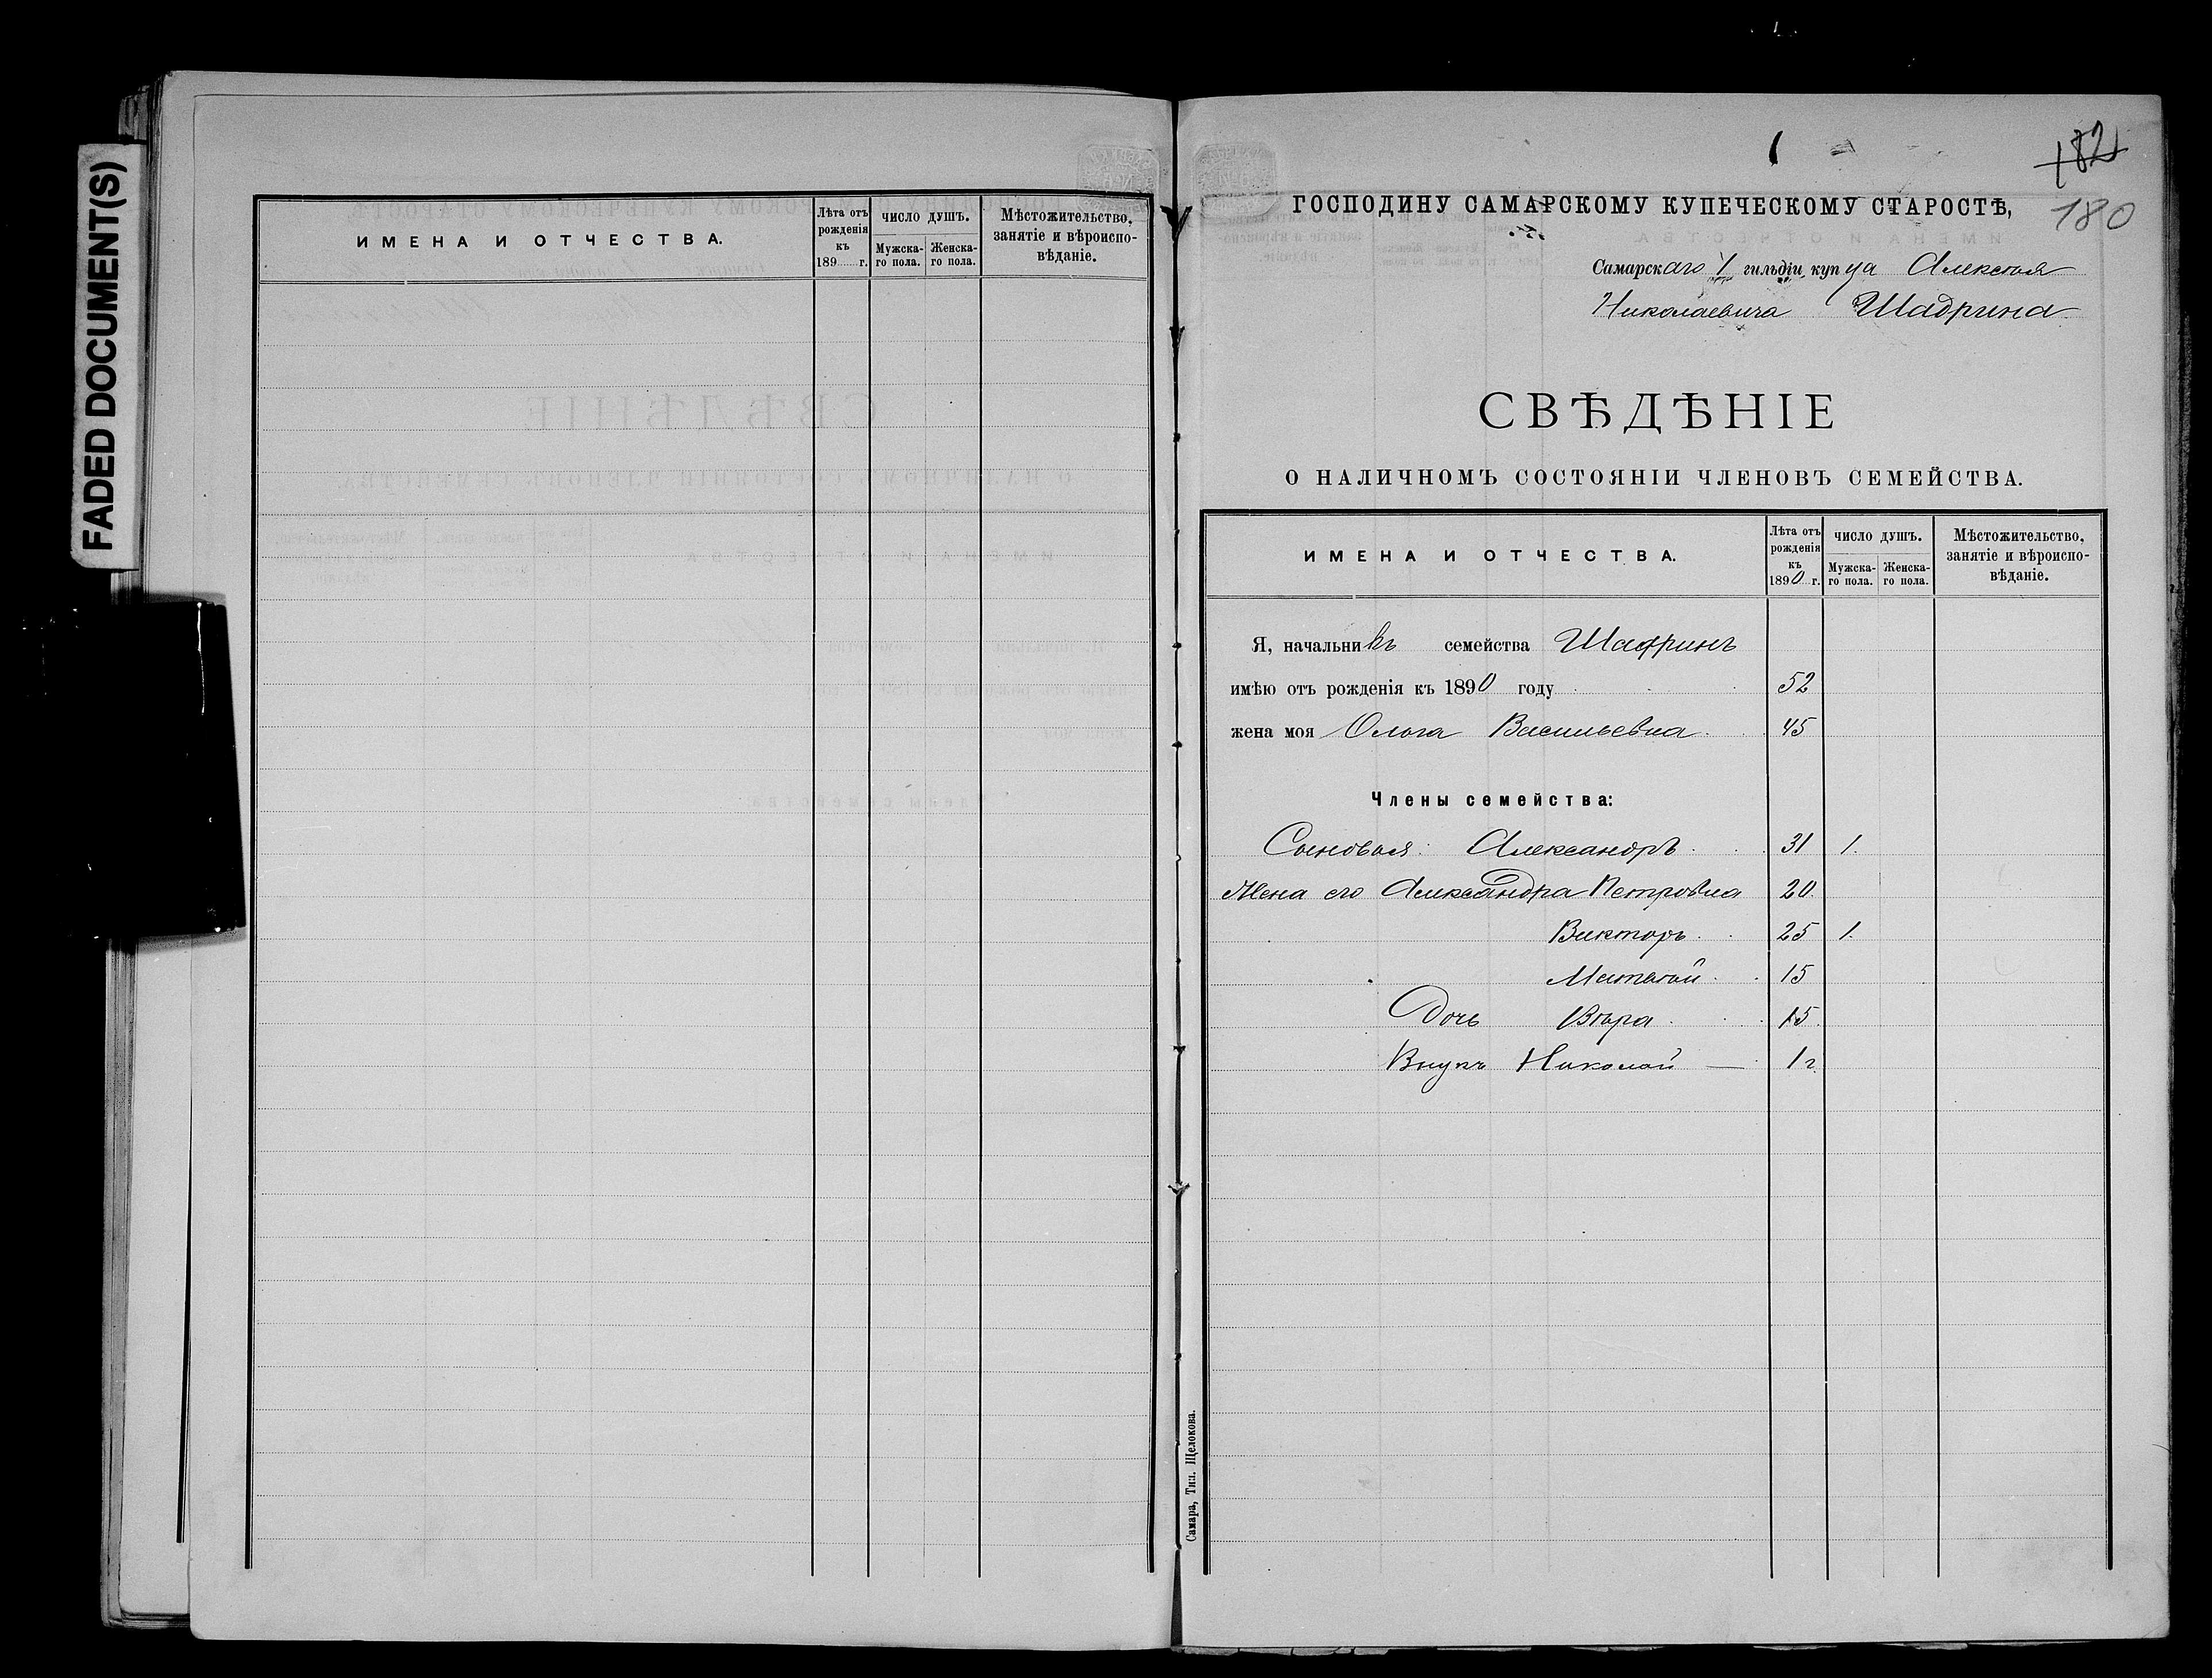 FADED DOCUMENT(S)
ИМЕНА И ОТЧЕСТВА.
Лѣта отъ рожденія къ 189 г.
ЧИСЛО ДУШЪ.
Мужска-го пола.
Женска-го пола.
Мѣстожительство, занятіе и вѣроиспо-вѣданіе.
182
180
ГОСПОДИНУ САМАРСКОМУ КУПЕЧЕСКОМУ СТАРОСТѢ,
Самарскаго 1 гильдіи, купца Алексѣя
Николаевича Шадрина
СВѢДѢНІЕ
О НАЛИЧНОМЪ СОСТОЯНІИ ЧЛЕНОВЪ СЕМЕЙСТВА.
ИМЕНА И ОТЧЕСТВА.
Лѣта отъ рожденія къ 1890 г.
ЧИСЛО ДУШЪ.
Мужска-го пола.
Женска-го пола.
Мѣстожительство, занятіе и вѣроиспо-вѣданіе.
Я, начальникъ семейства Шадринъ
имѣю отъ рожденія къ 1890 году 52
жена моя Ольга Васильевна 45
Члены семейства:
Сыновья: Александръ 31 1.
Жена его Александра Петровна 20
Викторъ 25 1.
Матвѣй 15
Дочь Вѣра 15
Внукъ Николай — 1 г.
Самара, Тип. Щелокова.